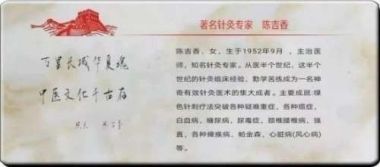 著名针灸专家 陈吉香
万里长城华夏魂
中医文化千古存
陈吉香，女，生于1952年9月，主治医
师，知名针灸专家。从医半个世纪，这半
个世纪的针灸临床经验，勤学苦练成为一名神
奇有效针灸医术的集大成者。主要成就:绿
色针刺疗法突破各种疑难重症，各种癌症，
白血病，糖尿病，尿毒症，颈椎腰椎病，强
直，各种瘫痪病，帕金森，心脏病(风心病)
等。